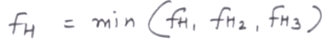 fH = min (fH, fH2, fH3)